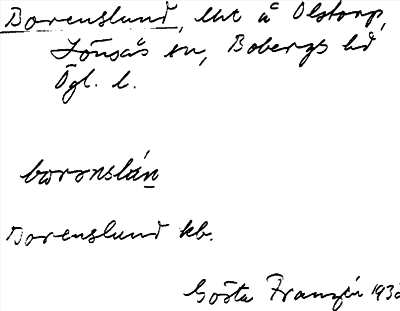 Borenslund, lht å Olstorp,
Lönsås sn, Bobergs hd
Ögl. l.
bωrənslún
Borenslund kb.
Gösta Franzén 193